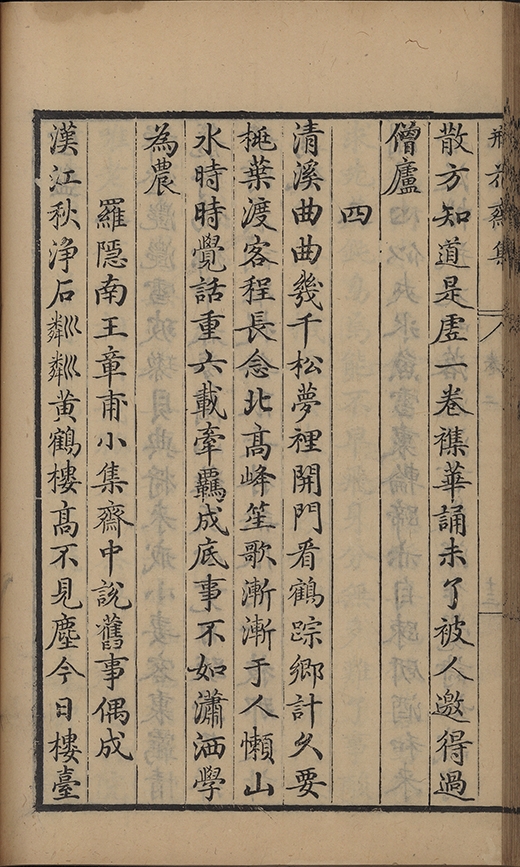 瓶花齋集
散方知道是虛一卷襍華誦未了被人邀得過
僧廬
四
清溪曲曲幾千松夢裡開門看鶴踪鄉計久要
桃葉渡客程長念北高峰笙歌漸漸于人懶山
水時時覺話重六載牽羈成底事不如瀟洒學
為農
羅隱南王章甫小集齋中說舊事偶成
漢江秋净石粼粼黄鶴樓髙不見塵今日樓臺